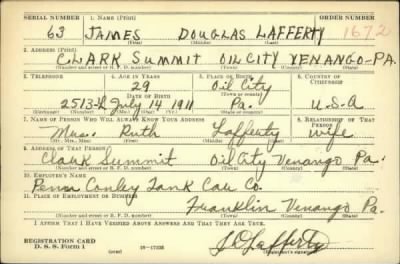 SERIAL NUMBER 1. NAME (Print) ORDER NUMBER
63 JAMES DOUGLAS LAFFERTY 1672
(First) (Middle) (Last)
2. ADDRESS (Print)
CLARK SUMMIT OIL CITY VENANGO-PA.
(Number and street or R. F. D. number) (Town) (County) (State)
3. TELEPHONE 4. AGE IN YEARS 5. PLACE OF BIRTH 6. COUNTRY OF CITIZENSHIP
29 Oil City
DATE OF BIRTH (Town or county)
2513-L July 14 1911 Pa. U.S.A
(Mo.) (Day) (Yr.) (State or country)
7. NAME OF PERSON WHO WILL ALWAYS KNOW YOUR ADDRESS 8. RELATIONSHIP OF THAT PERSON
Mrs. Ruth Lafferty wife
(Mr., Mrs., Miss) (First) (Middle) (Last)
9. ADDRESS OF THAT PERSON
Clark Summit Oil City Venango Pa.
(Number and street or R. F. D. number) (Town) (County) (State)
10. EMPLOYER'S NAME
Penn Conley Tank Car Co.
11. PLACE OF EMPLOYMENT OR BUSINESS
Franklin Venango Pa.
(Number and street or R. F. D. number) (Town) (County) (State)
I AFFIRM THAT I HAVE VERIFIED ABOVE ANSWERS AND THAT THEY ARE TRUE.
REGISTRATION CARD
D. S. S. Form 1 16-17105 J D Lafferty